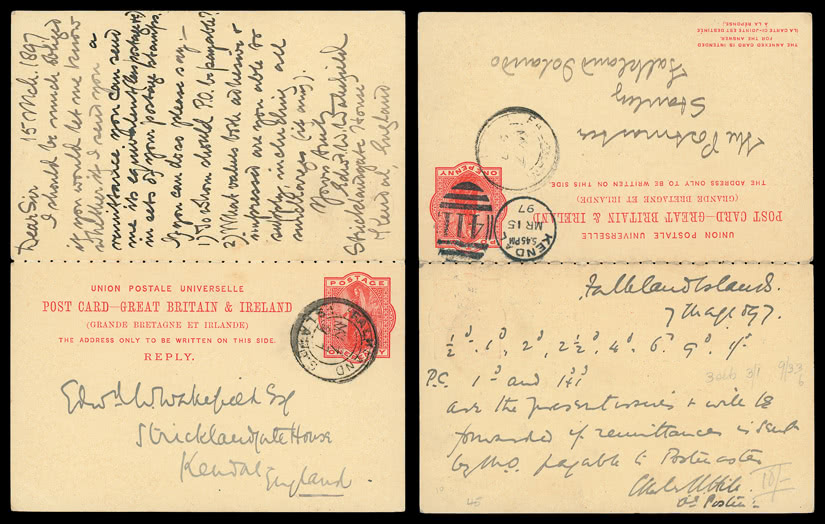 15 Mch. 1897
Dear Sir
I should be much obliged
if you would let me know
whether if I send you a
remittance you can send
me its equivalent (less postage &c)
in sets of your postage stamps.
If you can do so please say:—
1) To whom should P.O. be payable?
2) What values both adhesive &
impressed are you able to
supply, including all
surcharges (if any).
Yours truly
Edwd. W. Wakefield
Stricklandgate House
Kendal, England
UNION POSTALE UNIVERSELLE
POST CARD—GREAT BRITAIN & IRELAND
(GRANDE BRETAGNE ET IRLANDE)
THE ADDRESS ONLY TO BE WRITTEN ON THIS SIDE.
REPLY.
POSTAGE
ONE PENNY
FALKLAND ISLANDS
Edwd W. Wakefield Esq
Stricklandgate House
Kendal
England.
THE ANNEXED CARD IS INTENDED
FOR THE ANSWER.
(LA CARTE CI-JOINTE EST DESTINÉE
A LA RÉPONSE.)
UNION POSTALE UNIVERSELLE
POST CARD—GREAT BRITAIN & IRELAND
(GRANDE BRETAGNE ET IRLANDE)
THE ADDRESS ONLY TO BE WRITTEN ON THIS SIDE.
ONE PENNY
KENDAL
5.45PM
MR 15
97
411
The Postmaster
Stanley
Falkland Islands
Falkland Islands.
7 May 1897.
½d. 1d, 2d, 2½d, 4d. 6d. 9d. 1/-
P.C. 1d and 1+1d
are the present issues & will be
forwarded if remittance is sent
by M.O. payable to Postmaster
10/-